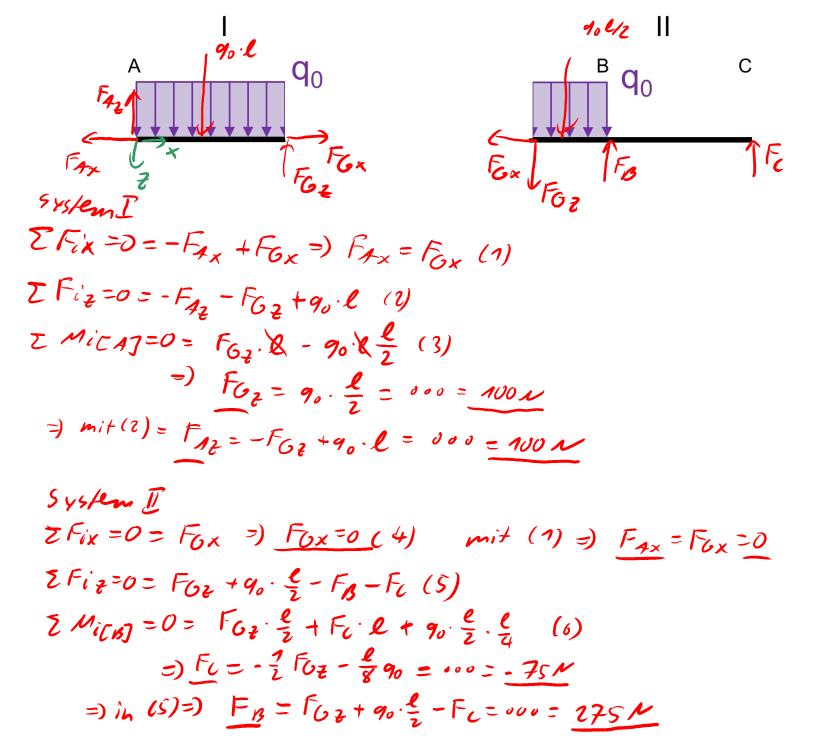 I II
q₀·l q₀l/2
A q₀ B q₀ C
F_Az
F_Ax x z F_Gz F_Gx F_Gx F_Gz F_B F_C
System I
Σ Fix = 0 = -F_Ax + F_Gx => F_Ax = F_Gx (1)
Σ Fiz = 0 = -F_Az - F_Gz + q₀·l (2)
Σ Mi[A] = 0 = F_Gz·l - q₀·l l/2 (3)
=> F_Gz = q₀·l/2 = ... = 100N
=> mit (2) = F_Az = -F_Gz + q₀·l = ... = 100N
System II
Σ Fix = 0 = F_Gx => F_Gx = 0 (4) mit (1) => F_Ax = F_Gx = 0
Σ Fiz = 0 = F_Gz + q₀·l/2 - F_B - F_C (5)
Σ Mi[B] = 0 = F_Gz·l/2 + F_C·l + q₀·l/2·l/4 (6)
=> F_C = -1/2 F_Gz - l/8 q₀ = ... = -75N
=> in (5) => F_B = F_Gz + q₀·l/2 - F_C = ... = 275N